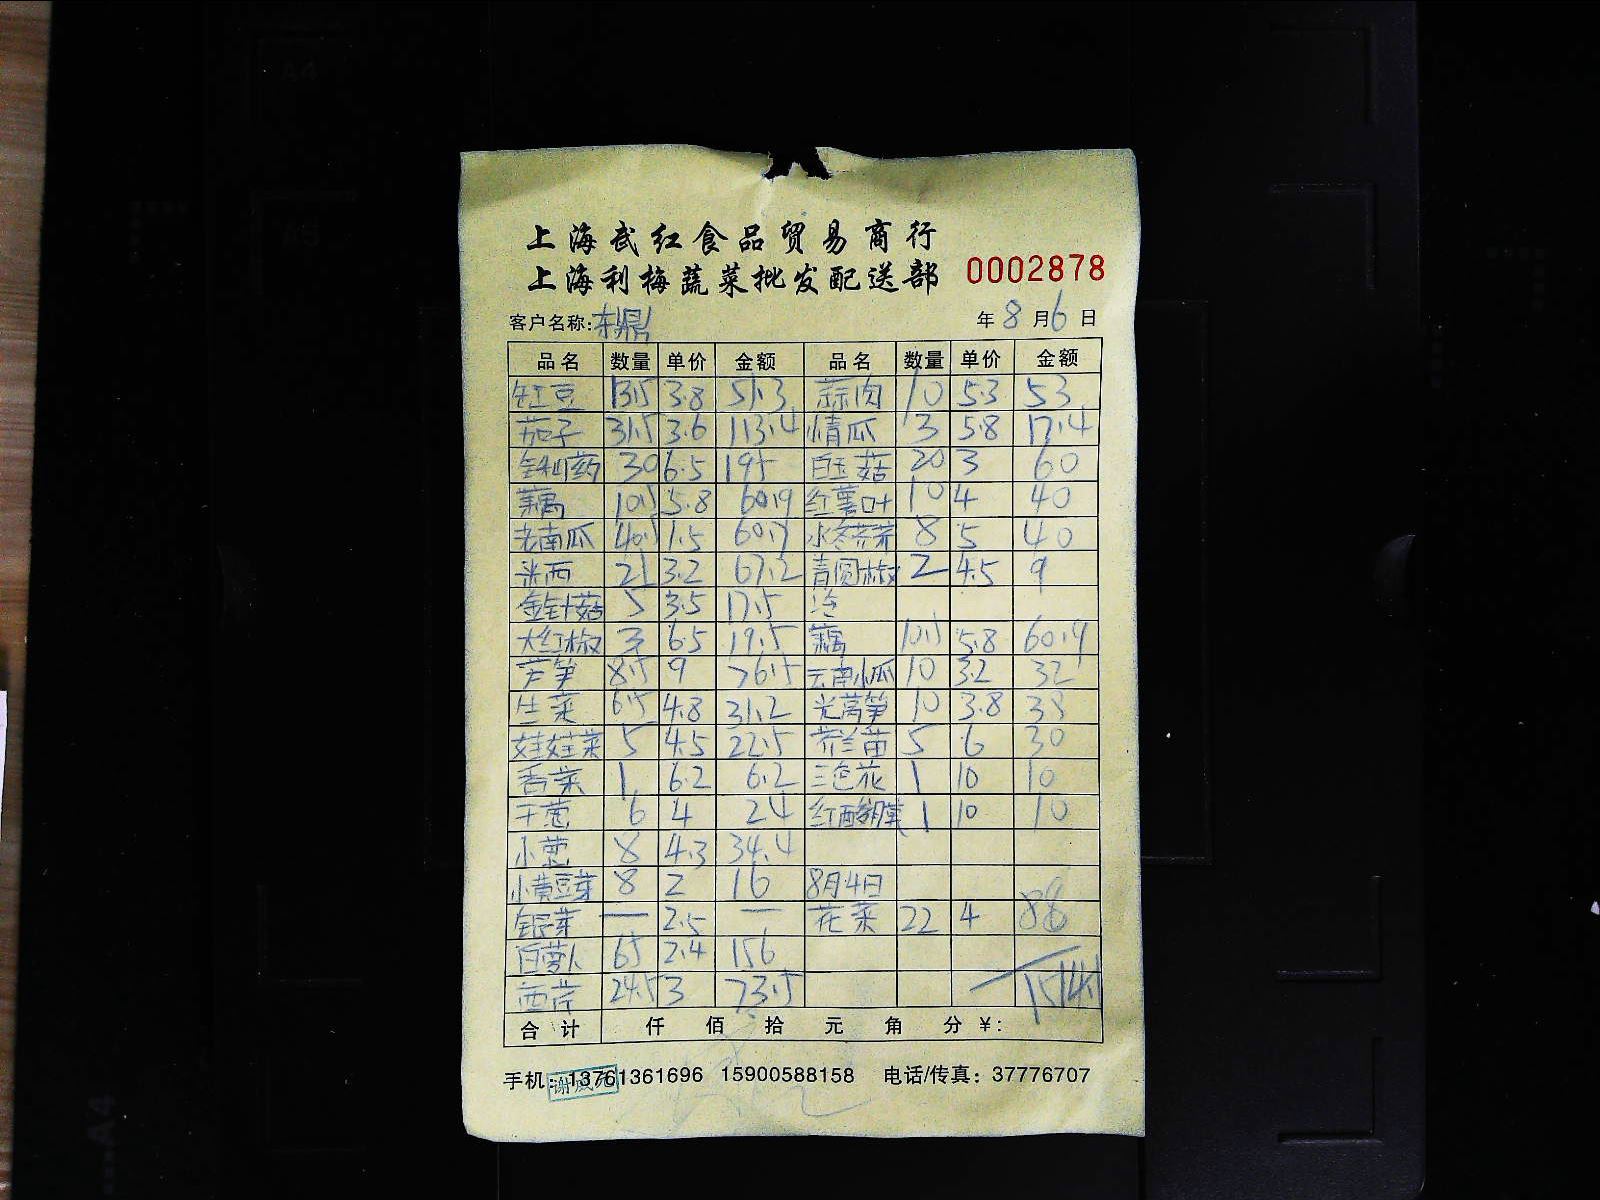 上海武红食品贸易商行
上海利梅蔬菜批发配送部 0002878
客户名称:东鼎 年8月6日
品名 数量 单价 金额 品名 数量 单价 金额
豇豆 13.5 3.8 51.3 蒜肉 10 5.3 53
茄子 31.5 3.6 113.4 情瓜 3 5.8 17.4
30 6.5 195 白玉菇 20 3 60
藕 10.5 5.8 60.9 红薯叶 10 4 40
老南瓜 40.5 1.5 60.7 8 5 40
米西 21 3.2 67.2 青圆椒 2 4.5 9
金针菇 5 3.5 17.5
大红椒 3 6.5 19.5 藕 10.5 5.8 60.9
芦笋 8.5 9 76.5 云南小瓜 10 3.2 32
生菜 6.5 4.8 31.2 光莴笋 10 3.8 38
娃娃菜 5 4.5 22.5 芥兰苗 5 6 30
香菜 1 6.2 6.2 三色花 1 10 10
干葱 6 4 24 1 10 10
小葱 8 4.3 34.4
小黄豆芽 8 2 16 8月4日
银芽 — 2.5 — 花菜 22 4 88
白萝卜 65 2.4 156
西芹 24.5 3 73.5 1514.1
合计 仟 佰 拾 元 角 分 ¥:
手机:13761361696 15900588158 电话/传真:37776707